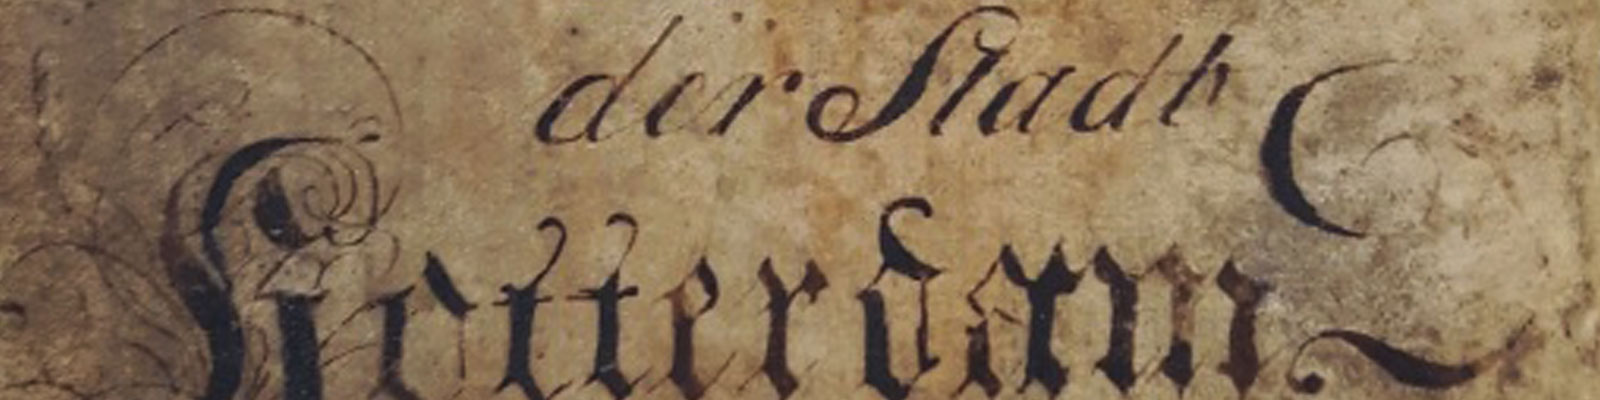 der Stadt
Rotterdam